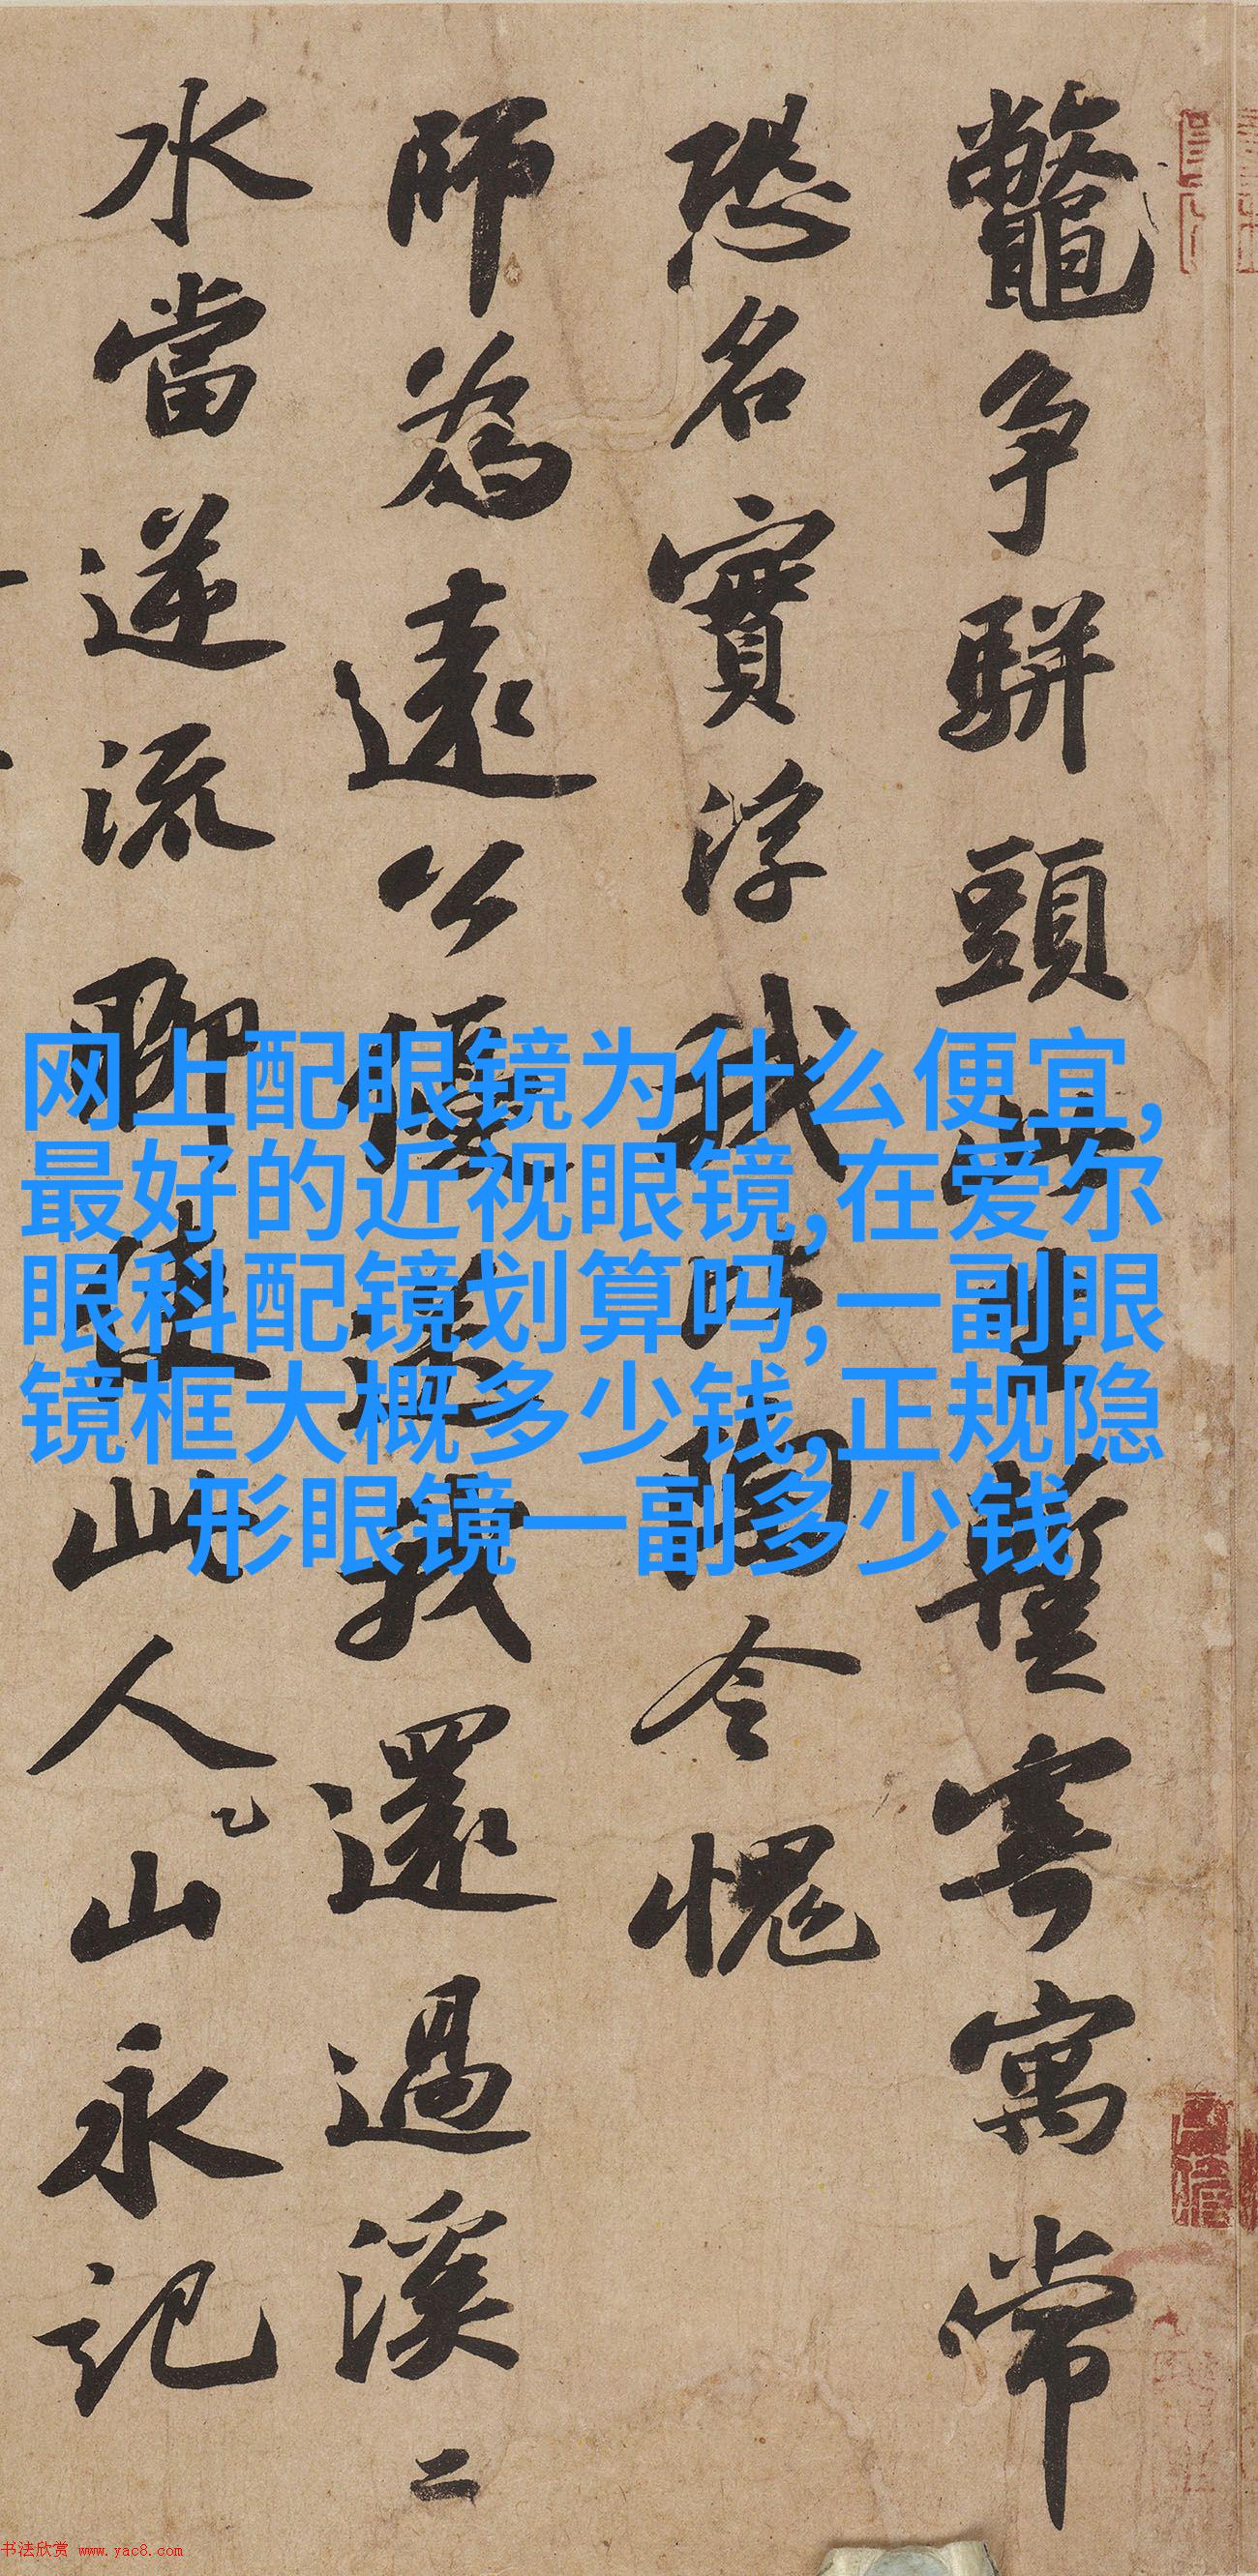 鼈争駢頭此生暫寄寓常
恐名實浮我比陶令愧
師為遠公優送我還過溪二
水當逆流聊使此人山永記
网上配眼镜为什么便宜,
最好的近视眼镜,在爱尔
眼科配镜划算吗,一副眼
镜框大概多少钱,正规隐
形眼镜一副多少钱
书法欣赏 www.yac8.com